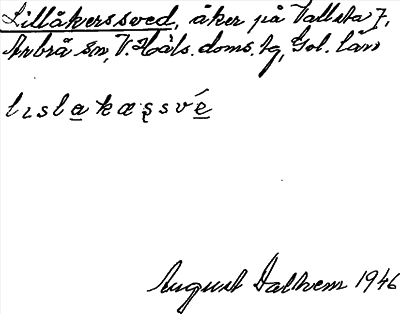 Lillåkerssved, åker på Vallsta 7,
Arbrå sn, V. Häls. doms. tg, Gol. län
lɪslakæʂsvé
August Dalhem 1946